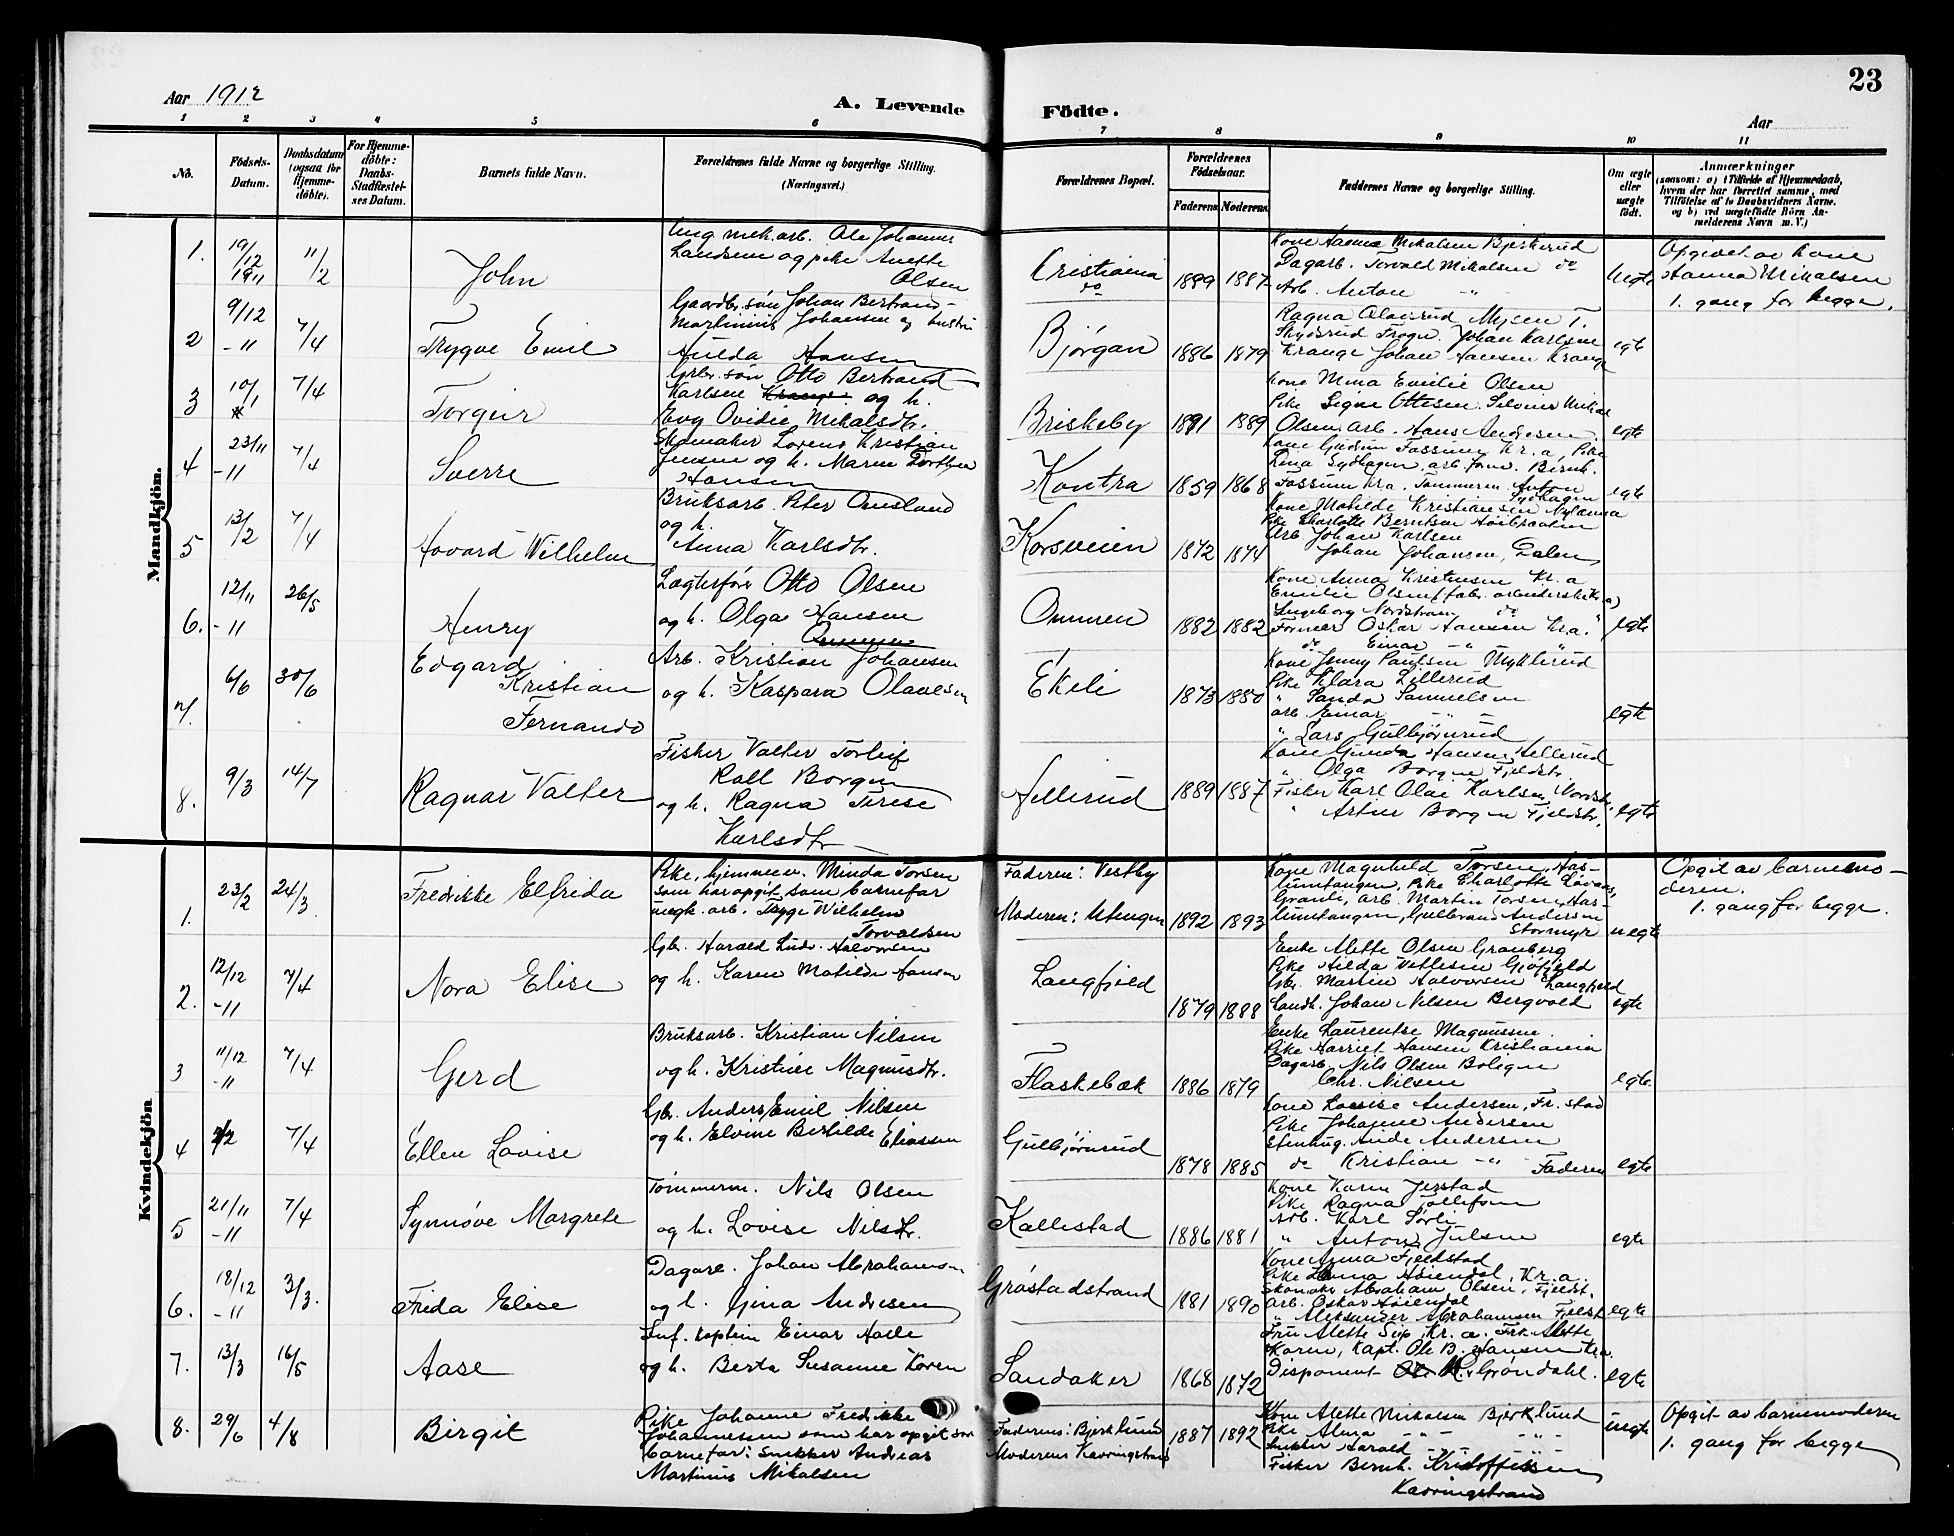 23
Aar 1912
A. Levende Födte.
Aar
1 2 3 4 5 6 7 8 9 10 11
No.
Födsels-Datum.
Daabsdatum (ogsaa for Hjemme-döbte).
For Hjemme-döbte: Daabs-Stadfæstel-ses Datum.
Barnets fulde Navn.
Forældrenes fulde Navne og borgerlige Stilling.
(Næringsvei.)
Forældrenes Bopæl.
Forældrenes Födselsaar.
Faderens Moderens
Faddernes Navne og borgerlige Stilling.
Om ægte eller uægte födt.
Anmærkninger
(saasom: a) i Tilfælde af Hjemmedaab,
hvem der har forrettet samme, med
Tilföielse af to Daabsvidners Navne,
og b) ved uægtefödte Börn An-
melderens Navn m. V.)
Mandkjön.
1. 19/12 1911 11/2
John
Ung mek. arb. Ole Johannes
Landsem og pike Anette
Olsen
Cristiania
do
1889 1887
Kone Hanna Mikalsen Bjerkerud
Dagarb. Torvald Mikalsen do
Arb. Anton " -
uegte
Opgivet av kone
Hanna Mikalsen
1. gang for begge.
2 9/12 -11 7/4
Trygve Emil
Gaardbr. søn Johan Bertrand
Martinius Johansen og hustru
Hulda Hansen
Bjørgan
1886 1879
Johan Karlsen
Krange Johan Hansen Krange
egte
3 10/1 7/4
Torgeir
Grbr. søn Otto Bertrand
Karlsen og h.
Evy Ovidie Mekalsdtr.
Briskeby
1891 1889
Kone Mina Emilie Olsen
Pike Signe Ottesen. Silvius Mikal
Olsen, arb. Hans Andresen.
egte
4 23/11 -11 7/4
Sverre
Skomaker Lorens Kristian
Jensen og h. Maren Dorthea
Hansen
Kontra
1859 1868
Kone Gudrun Fossum Kr.a, Pike
Fossum Kra. Tømmerm. Anton
Sydhagen
egte
5 13/2 7/4
Hovard Wilhelm
Bruksarb. Peter Omsland
og h.
Anna Karlsdtr.
Korsveien
1872 1874
Kone Matilde Kristiansen
Pike Charlotte Berntsen
Arb. Johan Karlsen
Johan Johansen, Dalen
6. 12/11 -11 26/5
Henry
Otto Olsen
og h. Olga Hansen
Ommen
1882 1882
Kone Anna Kristensen Kr.a
Emilie Olsen
Ingeborg Nordstrøm do
Former Oskar Hansen Kra.
do Einar - " "
egte
7. 6/6 30/6
Edgard
Kristian
Fernando
Arb. Kristian Johansen
og h. Kaspara Olavesen
Ekeli
1873 1880
Kone Jenny Paulsen Myklerud
Pike Klara Lillerud
" Sanda Samuelsen
arb. Einar - " -
" Lars Gulbjørnrud
egte
8. 9/3 14/7
Ragnar Valter
Fisker Valter Torleif
Rall Borgen
og h. Ragna Terese
Karlsdtr
Hellerud
1889 1887
Kone Gunda Hansen, Hellerud
" Olga Borgen Fjeldstr.
Fisker Karl Olai Karlsen Nordstr.
" Artur Borgen Fjeldstr.
egte
Kvindekjön
1. 23/2 24/3
Fredrikke Elfrida
Pike, hjemmev. Minda Torsen
som har opgit som barnefar
ungk. arb. Trygve Wilhelm
Torvaldsen
Faderen: Vestby
Moderen: Utengen
1892 1893
Kone Magnhild Torsen, Has-
lumtangen, Pike Charlotte
Granli, arb. Martin Torsen, Has-
lumtangen, Gulbrand Andersen
Stormyr
uegte
Opgit av barnemo-
deren.
1. gang for begge.
2. 12/12 -11 7/4
Nora Elise
Gbr. Harald Ludv. Halvorsen
og h. Karen Matilde Hansen
Langfjeld
1879 1888
Enke Alette Olsen Granberg
Pike Hilda Vetlesen Gjøfjeld
Gbr. Martin Halvorsen Langfjeld
Landh. Johan Nilsen Bergvold
egte
3 11/12 -11 7/4
Gerd
Bruksarb. Kristian Nilsen
og h. Kristine Magnusdtr.
Flaskebæk
1886 1879
Enke Laurentse Magnussen
Pike Harriet Hansen Kristiania
Dagarb. Nils Olsen Boligen
Chr. Nilsen
egte
4 7/2 7/4
Ellen Lovise
Gbr. Anders Emil Nilsen
og h. Elvine Berhilde Eliassen
Gulbjørnrud
1878 1885
Kone Lovise Andersen, Fr.stad
Pike Johanne Andersen
Stenhug. Ande Andersen
do Kristian - " - Faderen
egte
5 21/11 -11 7/4
Synnøve Margrete
Tømmerm. Nils Olsen
og h. Lovise Nilsdtr.
Kallestad
1886 1881
Kone Karen Jerstad
Pike Ragna Tollefsen
Arb. Karl Sørli
" Anton Julsen
egte
6. 18/12 -11 3/3.
Frida Elise
Dagarb. Johan Abrahamsen
og h. Gina Andresen
Gråstadstrand
1881 1890
Kone Anna Fjeldstad
Pike Anna Høiendal, Kr.a.
Skomaker Abraham Olsen, Fjeldst.
arb. Oskar Høiendal
" Aleksander Abrahamsen Fjeldst.
egte
7. 13/3 16/5
Aase
Inf. kaptein Einar Aasle
og h. Berta Susanne Koren
Sandaker
1868 1872
Fru Alette Sip, Kr.a. Frk. Alette
Koren, Kapt. Ole B. Hansen Kra.
Disponent Grøndahl.
egte
8. 29/6 4/8
Birgit
Pike Johanne Fredrikke
Johannessen som har opgit som
barnefar: Snekker Andreas
Martinus Mikalsen
Faderens: Bjerklund
Moderens Kavringstrand
1887 1892
Kone Alette Mikalsen Bjerklund
Pike Alma - " - - " -
Snekker Harald - " - - " -
Fisker Bernh. Kristoffersen
Kavringstrand
uegte
Opgit av barnemoderen
1. gang for begge